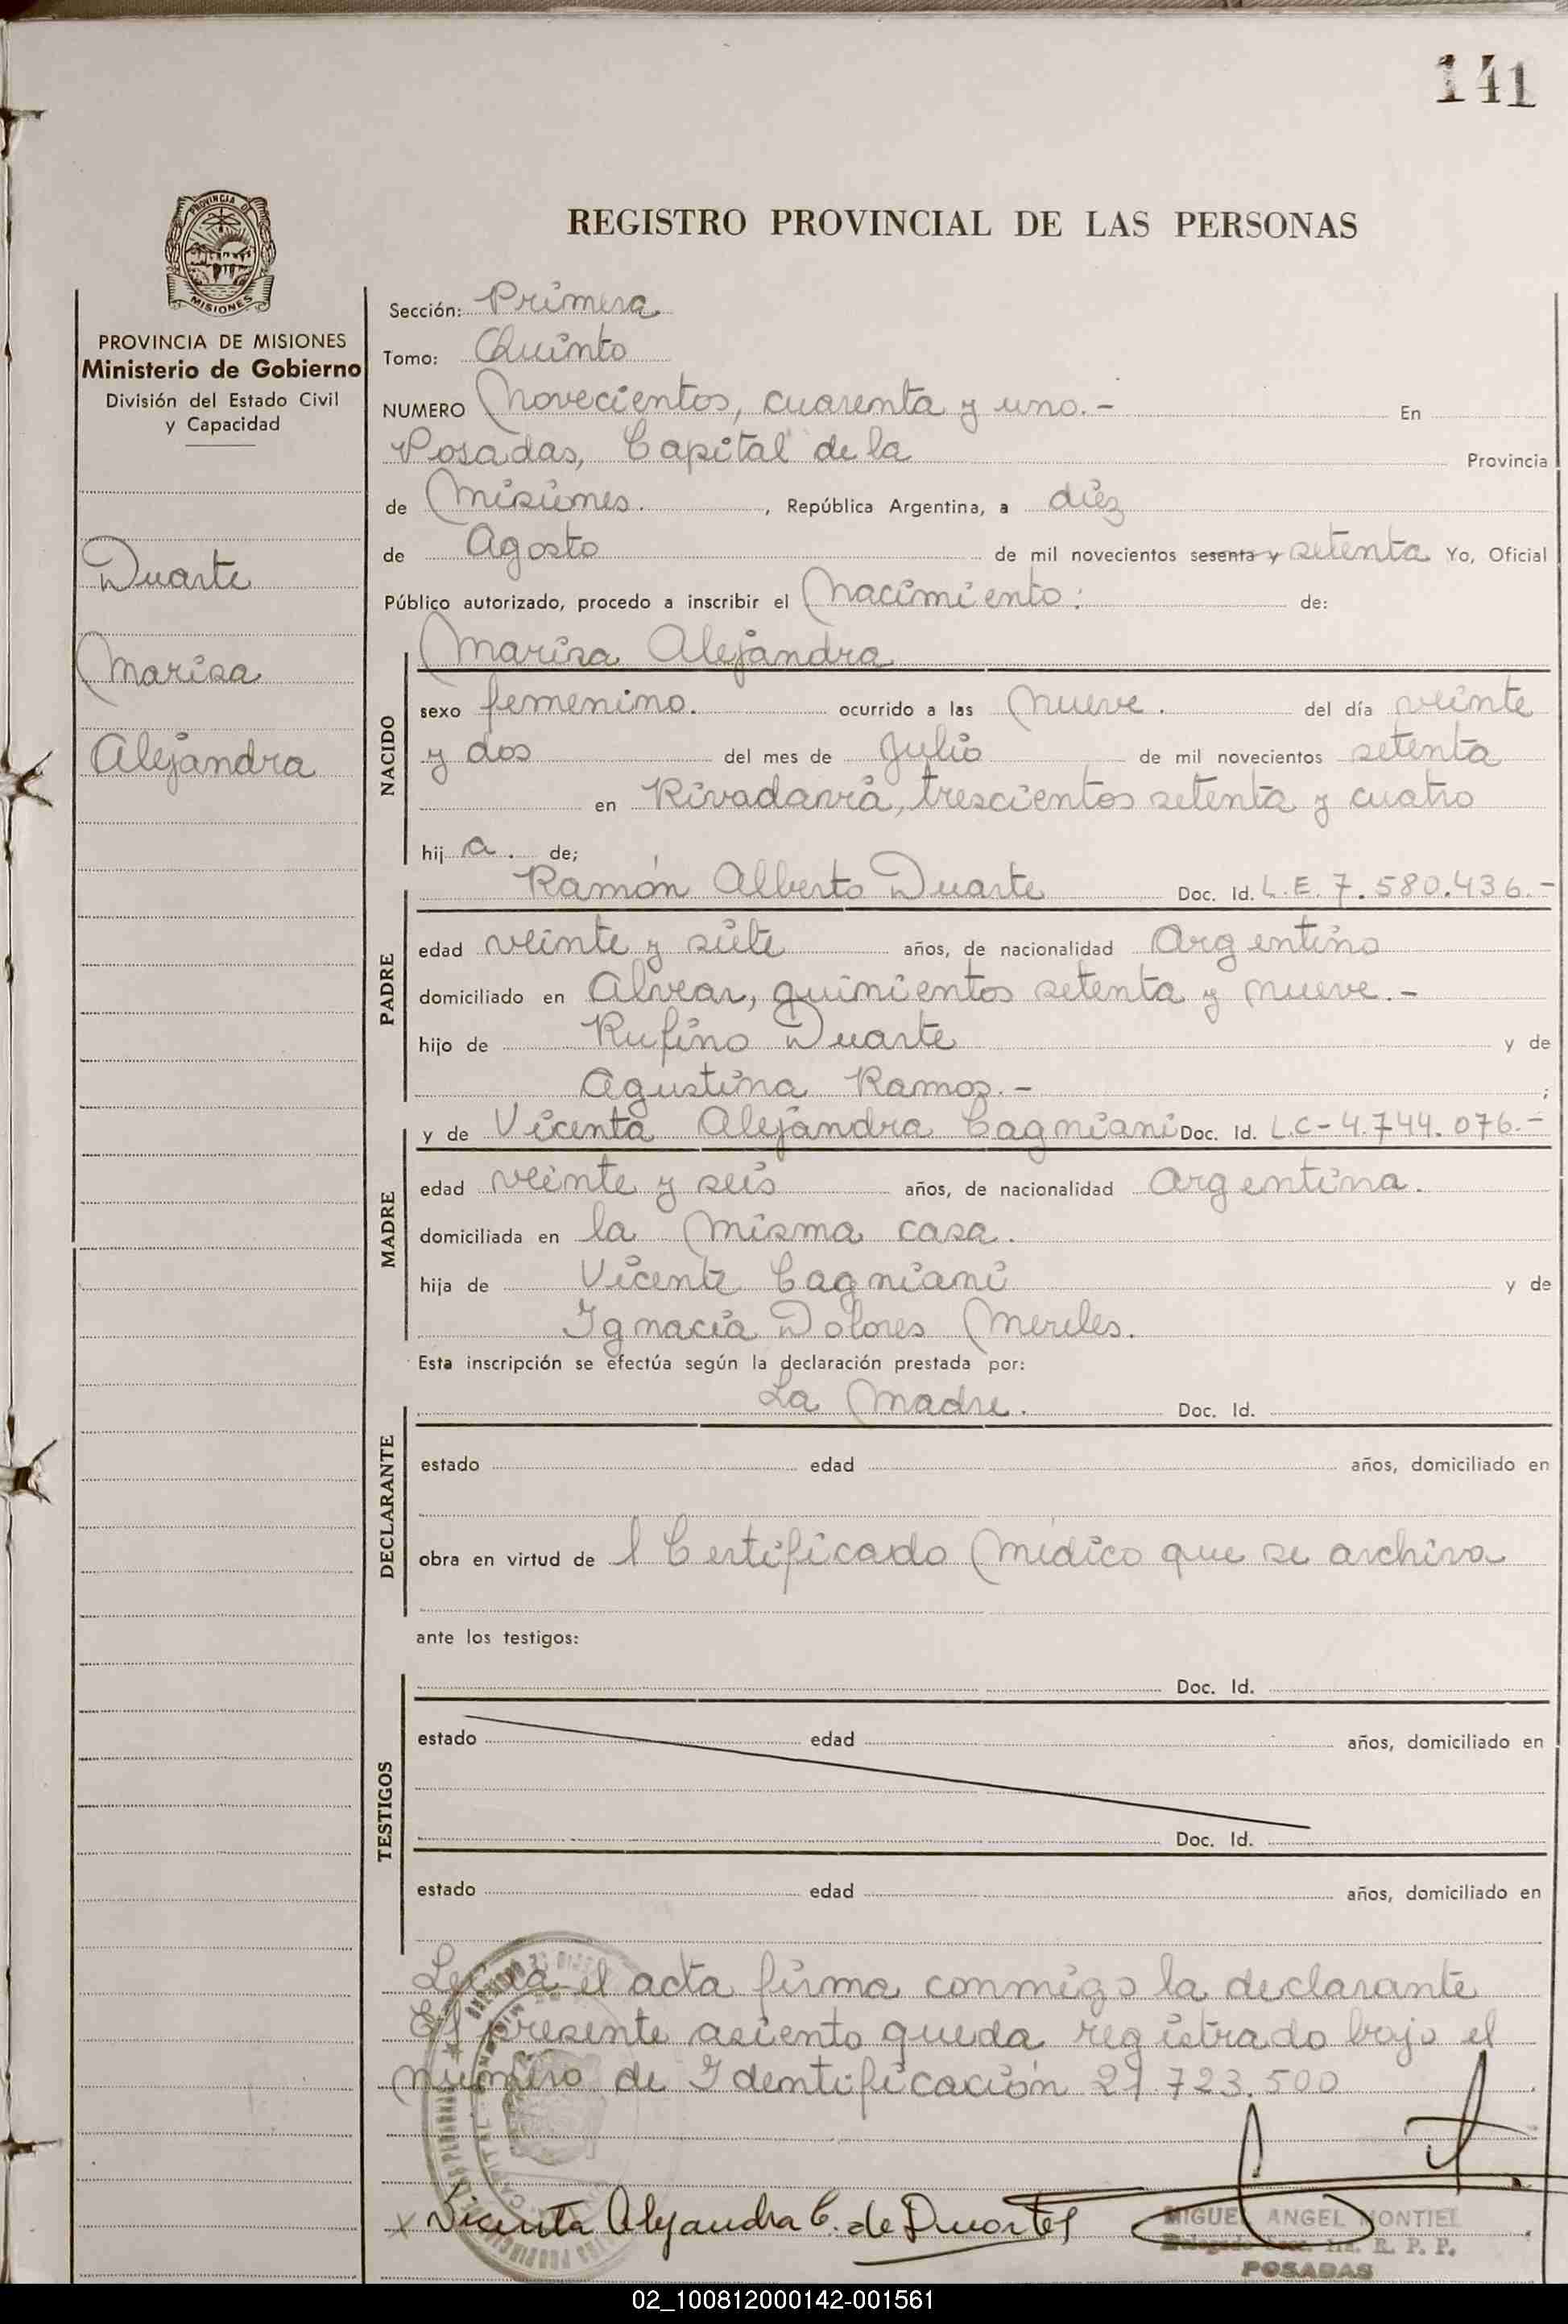 141
PROVINCIA DE
MISIONES
PROVINCIA DE MISIONES
Ministerio de Gobierno
División del Estado Civil
y Capacidad
Duarte
Marisa
Alejandra
REGISTRO PROVINCIAL DE LAS PERSONAS
Sección: Primera
Tomo: Quinto
NUMERO Novecientos, cuarenta y uno.- En
Posadas, Capital de la Provincia
de Misiones. , República Argentina, a diez
de Agosto de mil novecientos sesenta y setenta Yo, Oficial
Público autorizado, procedo a inscribir el Nacimiento: de:
Marisa Alejandra
NACIDO
sexo femenino. ocurrido a las Nueve. del día veinte
y dos del mes de Julio de mil novecientos setenta
en Rivadavia, trescientos setenta y cuatro
hij a. de;
Ramón Alberto Duarte Doc. Id. L.E. 7.580.436.-
PADRE
edad veinte y siete años, de nacionalidad Argentino
domiciliado en Alvear, quinientos setenta y nueve.-
hijo de Rufino Duarte y de
Agustina Ramos.- ;
y de Vicenta Alejandra Cagniani Doc. Id. L.C-4.744.076.-
MADRE
edad veinte y seis años, de nacionalidad Argentina.
domiciliada en la misma casa.
hija de Vicente Cagniani y de
Ignacia Dolores Mereles.
Esta inscripción se efectúa según la declaración prestada por:
La Madre. Doc. Id.
DECLARANTE
estado edad años, domiciliado en
obra en virtud de l Certificado Médico que se archiva
ante los testigos:
Doc. Id.
TESTIGOS
estado edad años, domiciliado en
Doc. Id.
estado edad años, domiciliado en
Leída el acta firma conmigo la declarante
El presente asiento queda registrado bajo el
número de Identificación 21.723.500
x Vicenta Alejandra C. de Duarte
MIGUEL ANGEL MONTIEL
R. P. P.
POSADAS
02_100812000142-001561